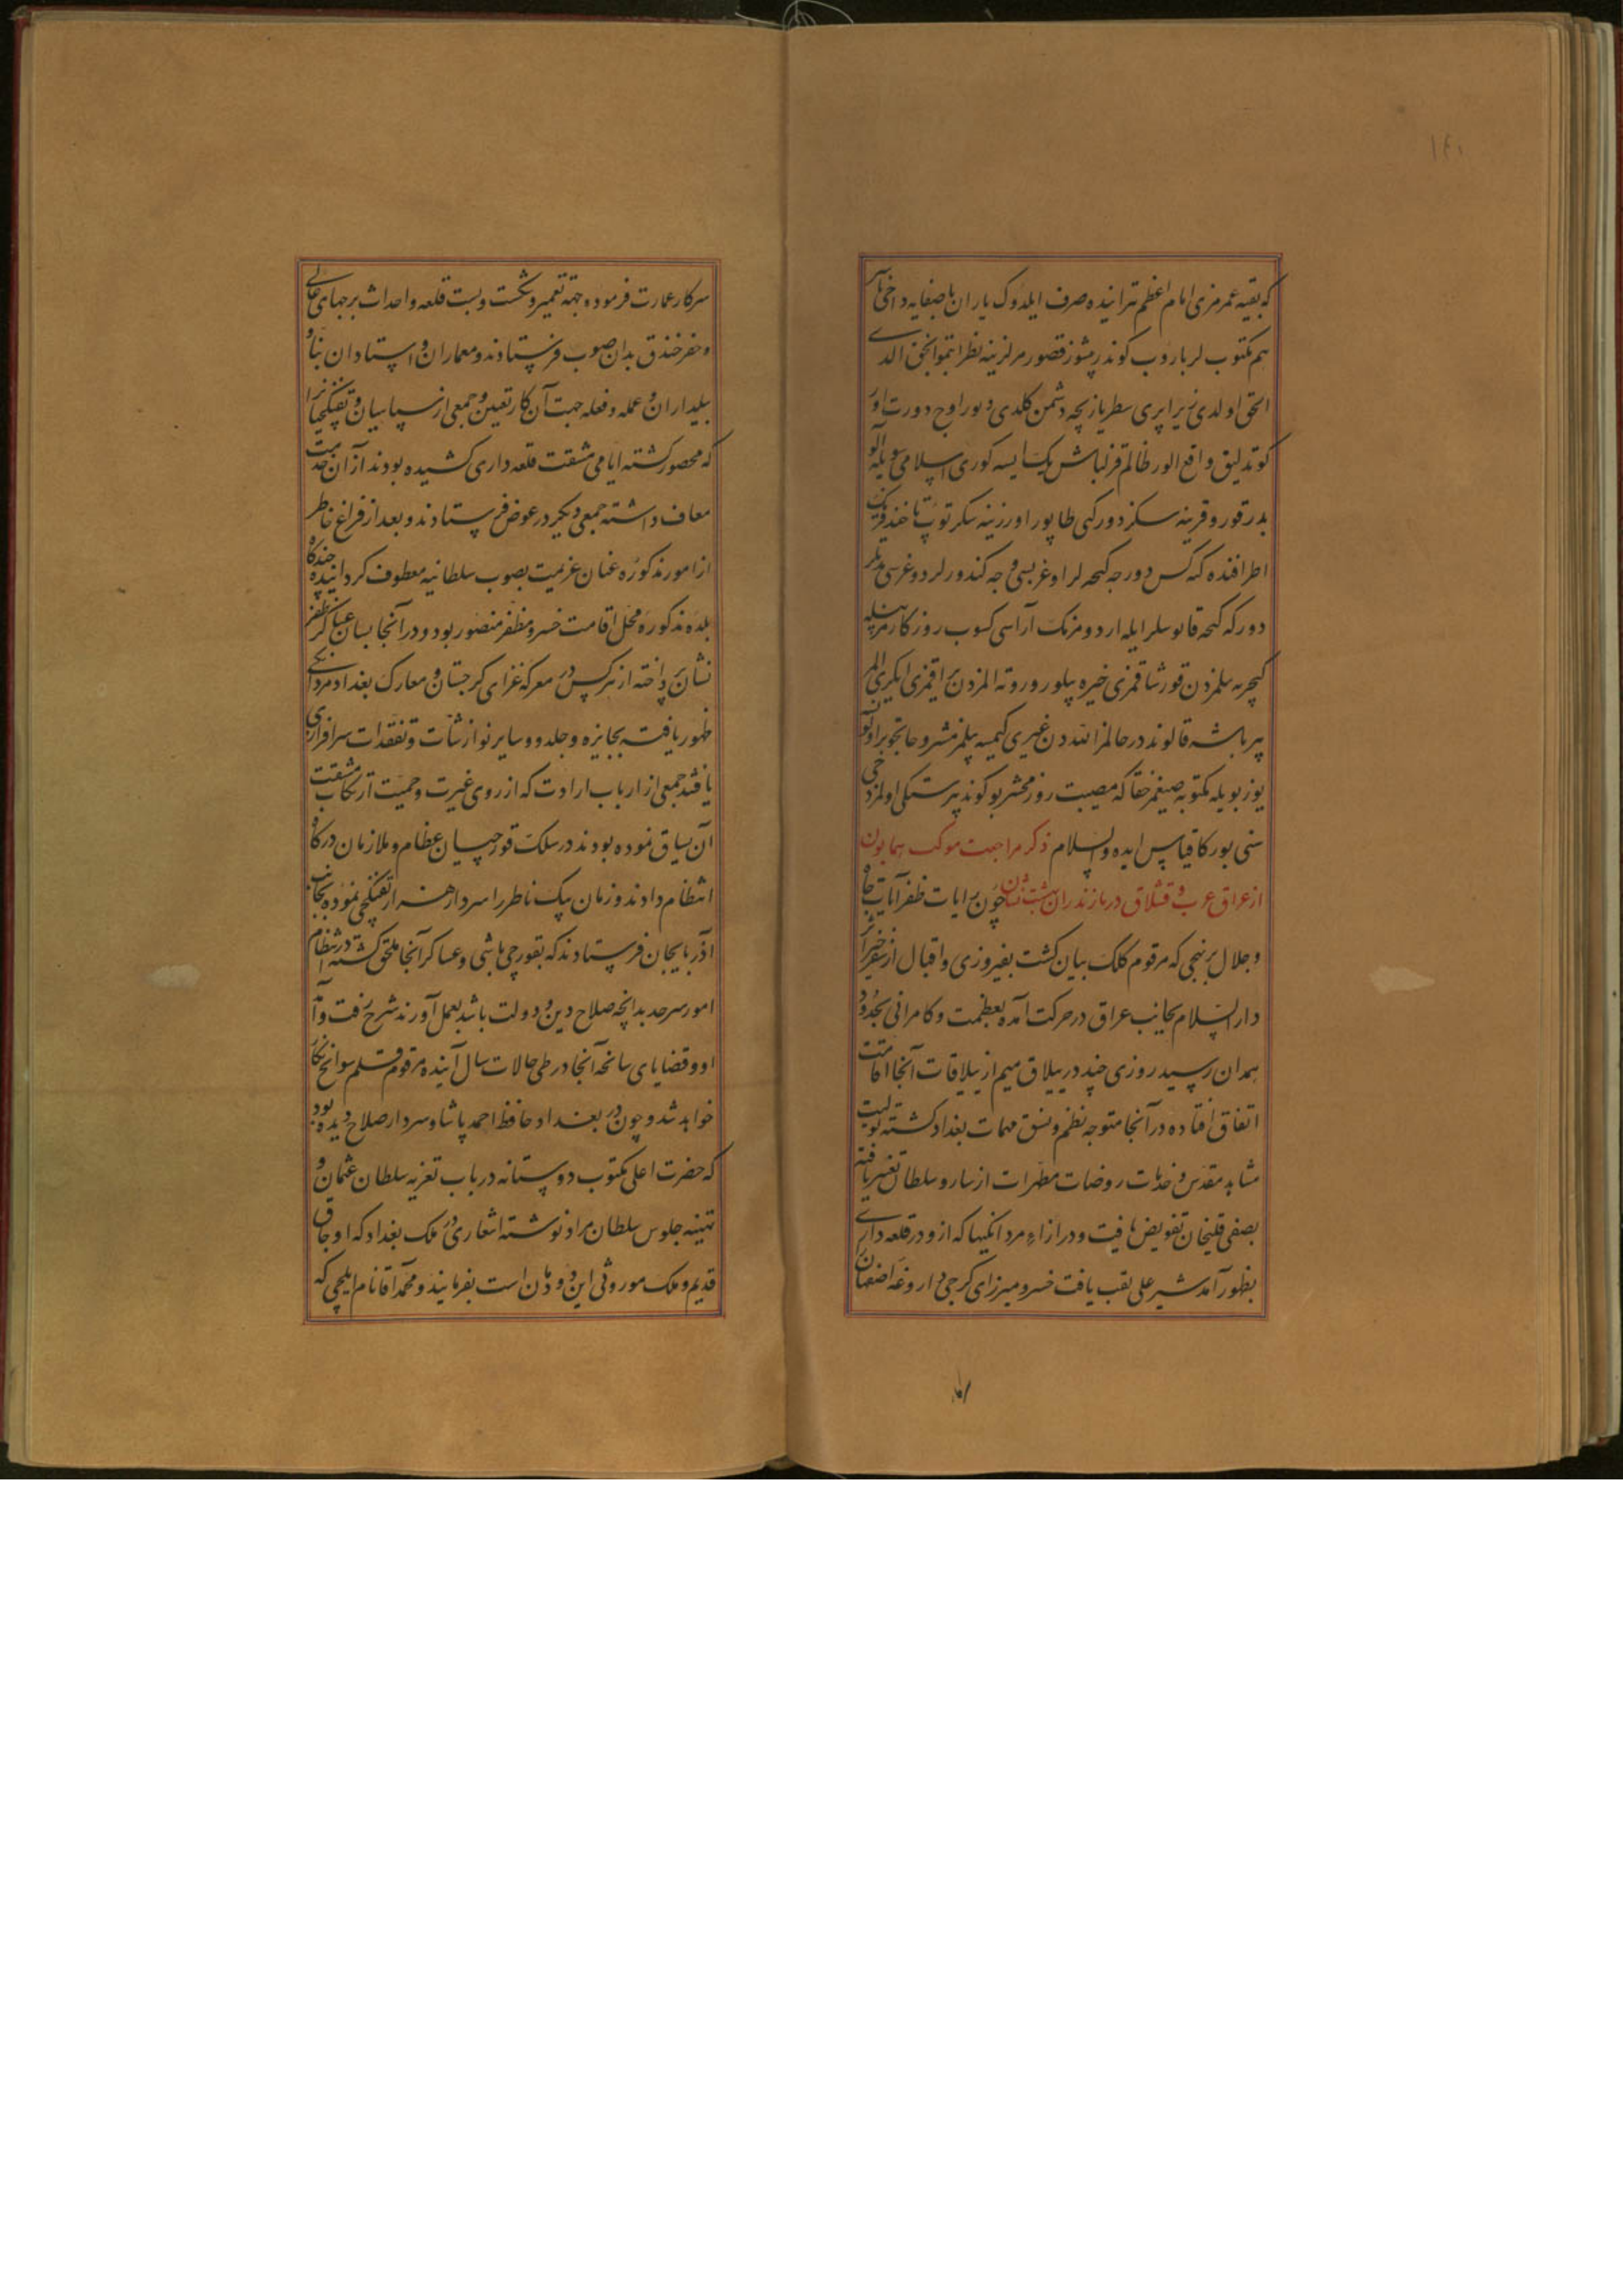 که بقیه عمرمزی امام اعظم ترابنیده صرف ایلدوک یاران باصفایه داخی
هم مکتوب لر یاروب کوندرمشوز قصور مرلرینه نظر ایتموا الحق الدی
الحق اولدی زیرا پری سطر یازیچه دشمن کلدی و بو راوج دورت اور
کوتدلیق واقع الور ظالم قزلباش یک ایسه کوری اسلامی سویله
بدر قورو قرینه سکز دور کهی طاپور اورزینه سکر توپ تا خندق
اطرافنده که کس دور جه کیجه لر اوغریسی و جه کندورلر دوغرسی
دورکه کیجه قانوسلر ایله اردومزنک آراسی کسوب روزکار
کیچر به بیلمزدن قورشاقمزی خیره بیلور وروته المزدن یراقمزی
پر باشه قالوندر حالمز الله دن غیری کیمسه بیلمز مشروحا
یوز بویله مکتوبه صیغمز حقا که مصیبت روز محشر بو کوندیر سنکی اولمز
سنی بورکا قیاس ایده والسلام ذکر مراجعت موکب همایون
از عراق عرب و قشلاق در مازندران بهشت نشان چون رایات ظفر آیات جاه
و جلال بر نهجی که مرقوم کلک بیان کشت بفیروزی و اقبال از سفر خیر اثر
دار السلام بجانب عراق در حرکت آمده بعظمت و کامرانی بحدود
همدان رسید روزی چند در ییلاق میم از ییلاقات آنجا اقامت
اتفاق افتاده در آنجا متوجه نظم و نسق مهمات بغداد کشته تولیت
مشاهد مقدس و خدمات روضات مطهرات از سارو سلطان تغییر یافته
بصفی قلیخان تفویض یافت و در ازاء مردانکیها که ازو در قلعه داری
بظهور آمد شیر علی لقب یافت خسرو میرزای کرجی داروغه اصفهان
سرکار عمارت فرموده جهة تعمیر و شکست و بست قلعه و احداث برجهای عالی
و حفر خندق بدان صوب فرستادند و معماران و استادان بنا و
بیلداران و عمله و فعله جهت آن کار تعیین و جمعی از سپاهیان و تفنکچیانرا
که محصور کشته ایامی مشقت قلعه داری کشیده بودند از آن خدمت
معاف داشته جمعی دیکر در عوض فرستادند و بعد از فراغ خاطر
از امور مذکوره عنان عزیمت بصوب سلطانیه معطوف کردانیده چندکاه
بلده مذکوره محل اقامت خسرو مظفر منصور بود و در آنجا بسان عساکر ظفر
نشان پرداخته از هرکس در معرکه غزای کرجستان و معارک بغداد مردانکی
ظهور یافت بجایزه و جلدو و سایر نوازشات و تفقدات سرافرازی
یافتند جمعی از ارباب ارادت که از روی غیرت و حمیت ارتکاب مشقت
آن یساق نموده بودند در سلک قورچیان عظام و ملازمان درکاه
انتظام دادند و زمان بیک ناظر را سردار هزار تفنکچی نموده بجانب
آذربایجان فرستادند که بقورچی باشی و عساکر آنجا ملحق کشته در انتظام
امور سرحد بدانچه صلاح دین و دولت باشد بعمل آورند شرح رفت و آمد
او و قضایای سانحه آنجا در طی حالات سال آینده مرقوم قلم سوانح نکار
خواهد شد و چون در بغداد حافظ احمد پاشا و سردار صلاح دیده بود
که حضرت اعلی مکتوب دوستانه در باب تعزیه سلطان عثمان و
تهنیه جلوس سلطان مراد نوشته اشعاری در ملک بغداد که اوجاق
قدیم و ملک موروثی این دودمان است بفرمایند و محمد آقا نام ایلچی که